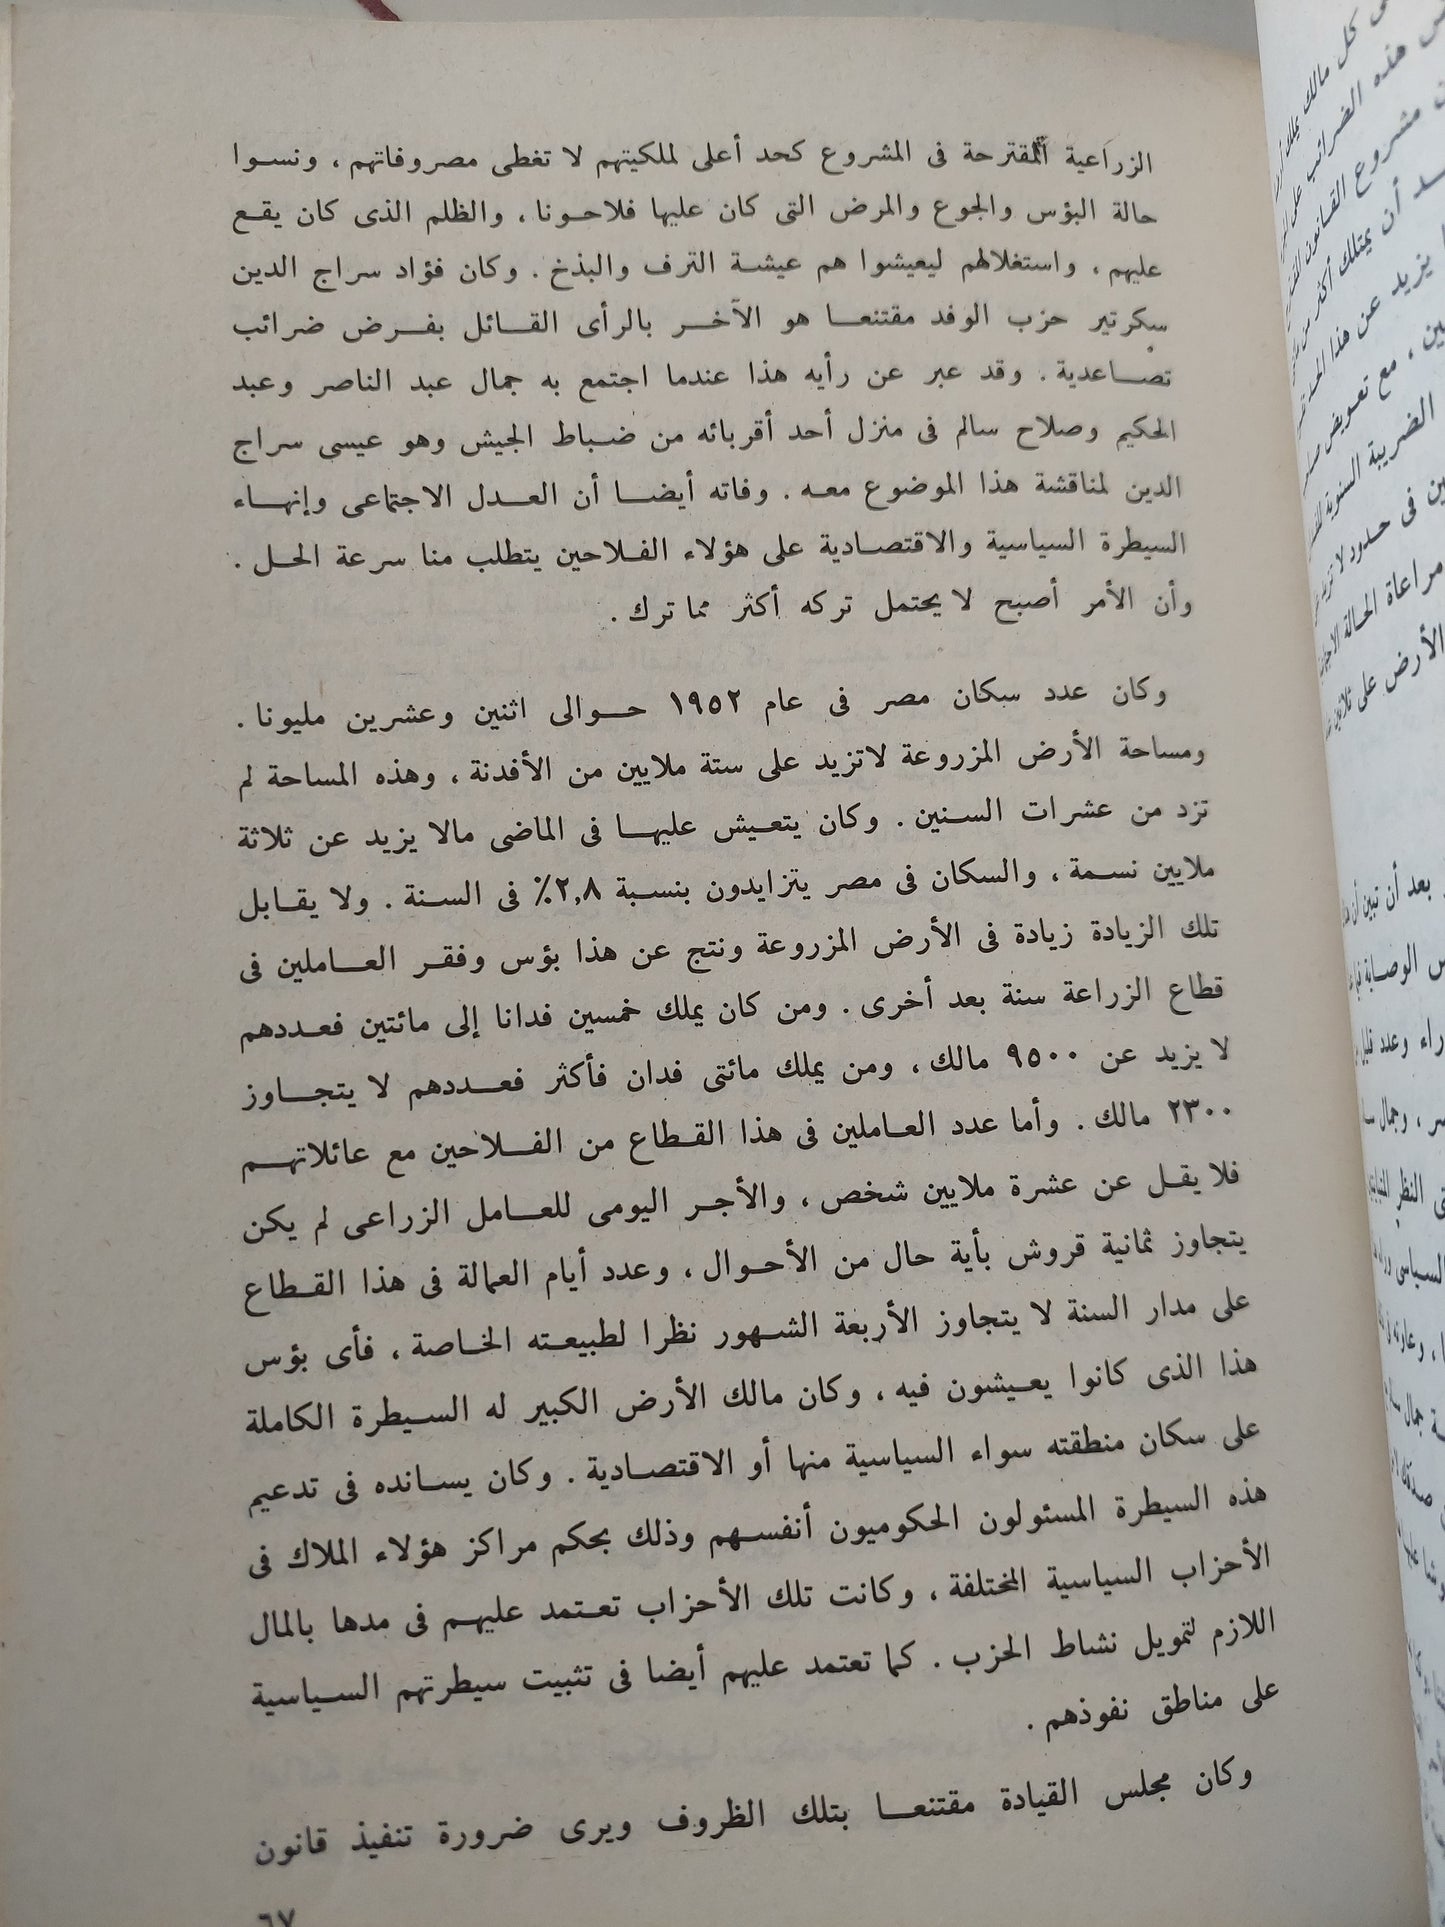 الزراعية المقترحة فى المشروع كحد أعلى لملكيتهم لا تغطى مصروفاتهم ، ونسوا
حالة البؤس والجوع والمرض التى كان عليها فلاحونا ، والظلم الذى كان يقع
عليهم ، واستغلالهم ليعيشوا هم عيشة الترف والبذخ . وكان فؤاد سراج الدين
سكرتير حزب الوفد مقتنعا هو الآخر بالرأى القائل بفرض ضرائب
تصاعدية . وقد عبر عن رأيه هذا عندما اجتمع به جمال عبد الناصر وعبد
الحكيم وصلاح سالم فى منزل أحد أقربائه من ضباط الجيش وهو عيسى سراج
الدين لمناقشة هذا الموضوع معه . وفاته أيضا أن العدل الاجتماعى وإنهاء
السيطرة السياسية والاقتصادية على هؤلاء الفلاحين يتطلب منا سرعة الحل .
وأن الأمر أصبح لا يحتمل تركه أكثر مما ترك .
وكان عدد سكان مصر فى عام ١٩٥٢ حوالى اثنين وعشرين مليونا .
ومساحة الأرض المزروعة لاتزيد على ستة ملايين من الأفدنة ، وهذه المساحة لم
تزد من عشرات السنين . وكان يتعيش عليها فى الماضى مالا يزيد عن ثلاثة
ملايين نسمة ، والسكان فى مصر يتزايدون بنسبة ٢,٨٪ فى السنة . ولا يقابل
تلك الزيادة زيادة فى الأرض المزروعة ونتج عن هذا بؤس وفقر العاملين فى
قطاع الزراعة سنة بعد أخرى . ومن كان يملك خمسين فدانا إلى مائتين فعددهم
لا يزيد عن ٩٥٠٠ مالك ، ومن يملك مائتى فدان فأكثر فعددهم لا يتجاوز
٢٣٠٠ مالك . وأما عدد العاملين فى هذا القطاع من الفلاحين مع عائلاتهم
فلا يقل عن عشرة ملايين شخص ، والأجر اليومى للعامل الزراعى لم يكن
يتجاوز ثمانية قروش بأية حال من الأحوال ، وعدد أيام العمالة فى هذا القطاع
على مدار السنة لا يتجاوز الأربعة الشهور نظرا لطبيعته الخاصة ، فأى بؤس
هذا الذى كانوا يعيشون فيه ، وكان مالك الأرض الكبير له السيطرة الكاملة
على سكان منطقته سواء السياسية منها أو الاقتصادية . وكان يسانده فى تدعيم
هذه السيطرة المسئولون الحكوميون أنفسهم وذلك بحكم مراكز هؤلاء الملاك فى
الأحزاب السياسية المختلفة ، وكانت تلك الأحزاب تعتمد عليهم فى مدها بالمال
اللازم لتمويل نشاط الحزب . كما تعتمد عليهم أيضا فى تثبيت سيطرتهم السياسية
على مناطق نفوذهم .
وكان مجلس القيادة مقتنعا بتلك الظروف ويرى ضرورة تنفيذ قانون
٦٧